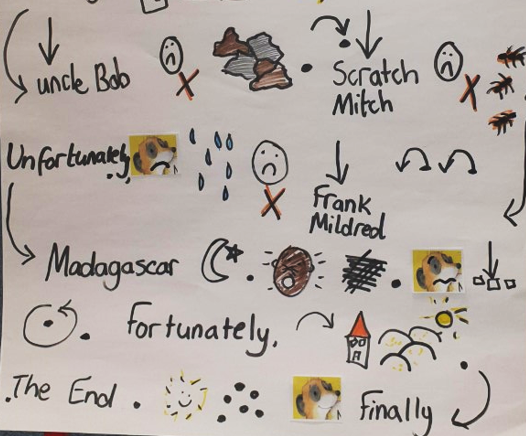 uncle Bob
Scratch
Mitch
Unfortunately,
Frank
Mildred
Madagascar
Fortunately.
.The End.
Finally